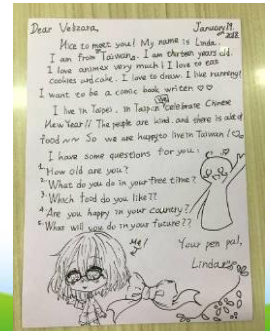 Dear Velizara,
January 19, 2018.
Nice to meet you! My name is Linda.
I am from Taiwang. I am thirteen years old.
I love animex very much! I love to eat
cookies and cake. I love to draw. I like running!
I want to be a comic book writer ♡♡
I live in Taipei. In Taipei we celebrate Chinese
New Year!! The people are kind. and there is a lot of
food ~~ So we are happy to live in Taiwan!
I have some questions for you.
1. How old are you?
2. What do you do in your free time?
3. Which food do you like??
4. Are you happy in your country?
5. What will you do in your future??
Me!
Your pen pal,
Linda